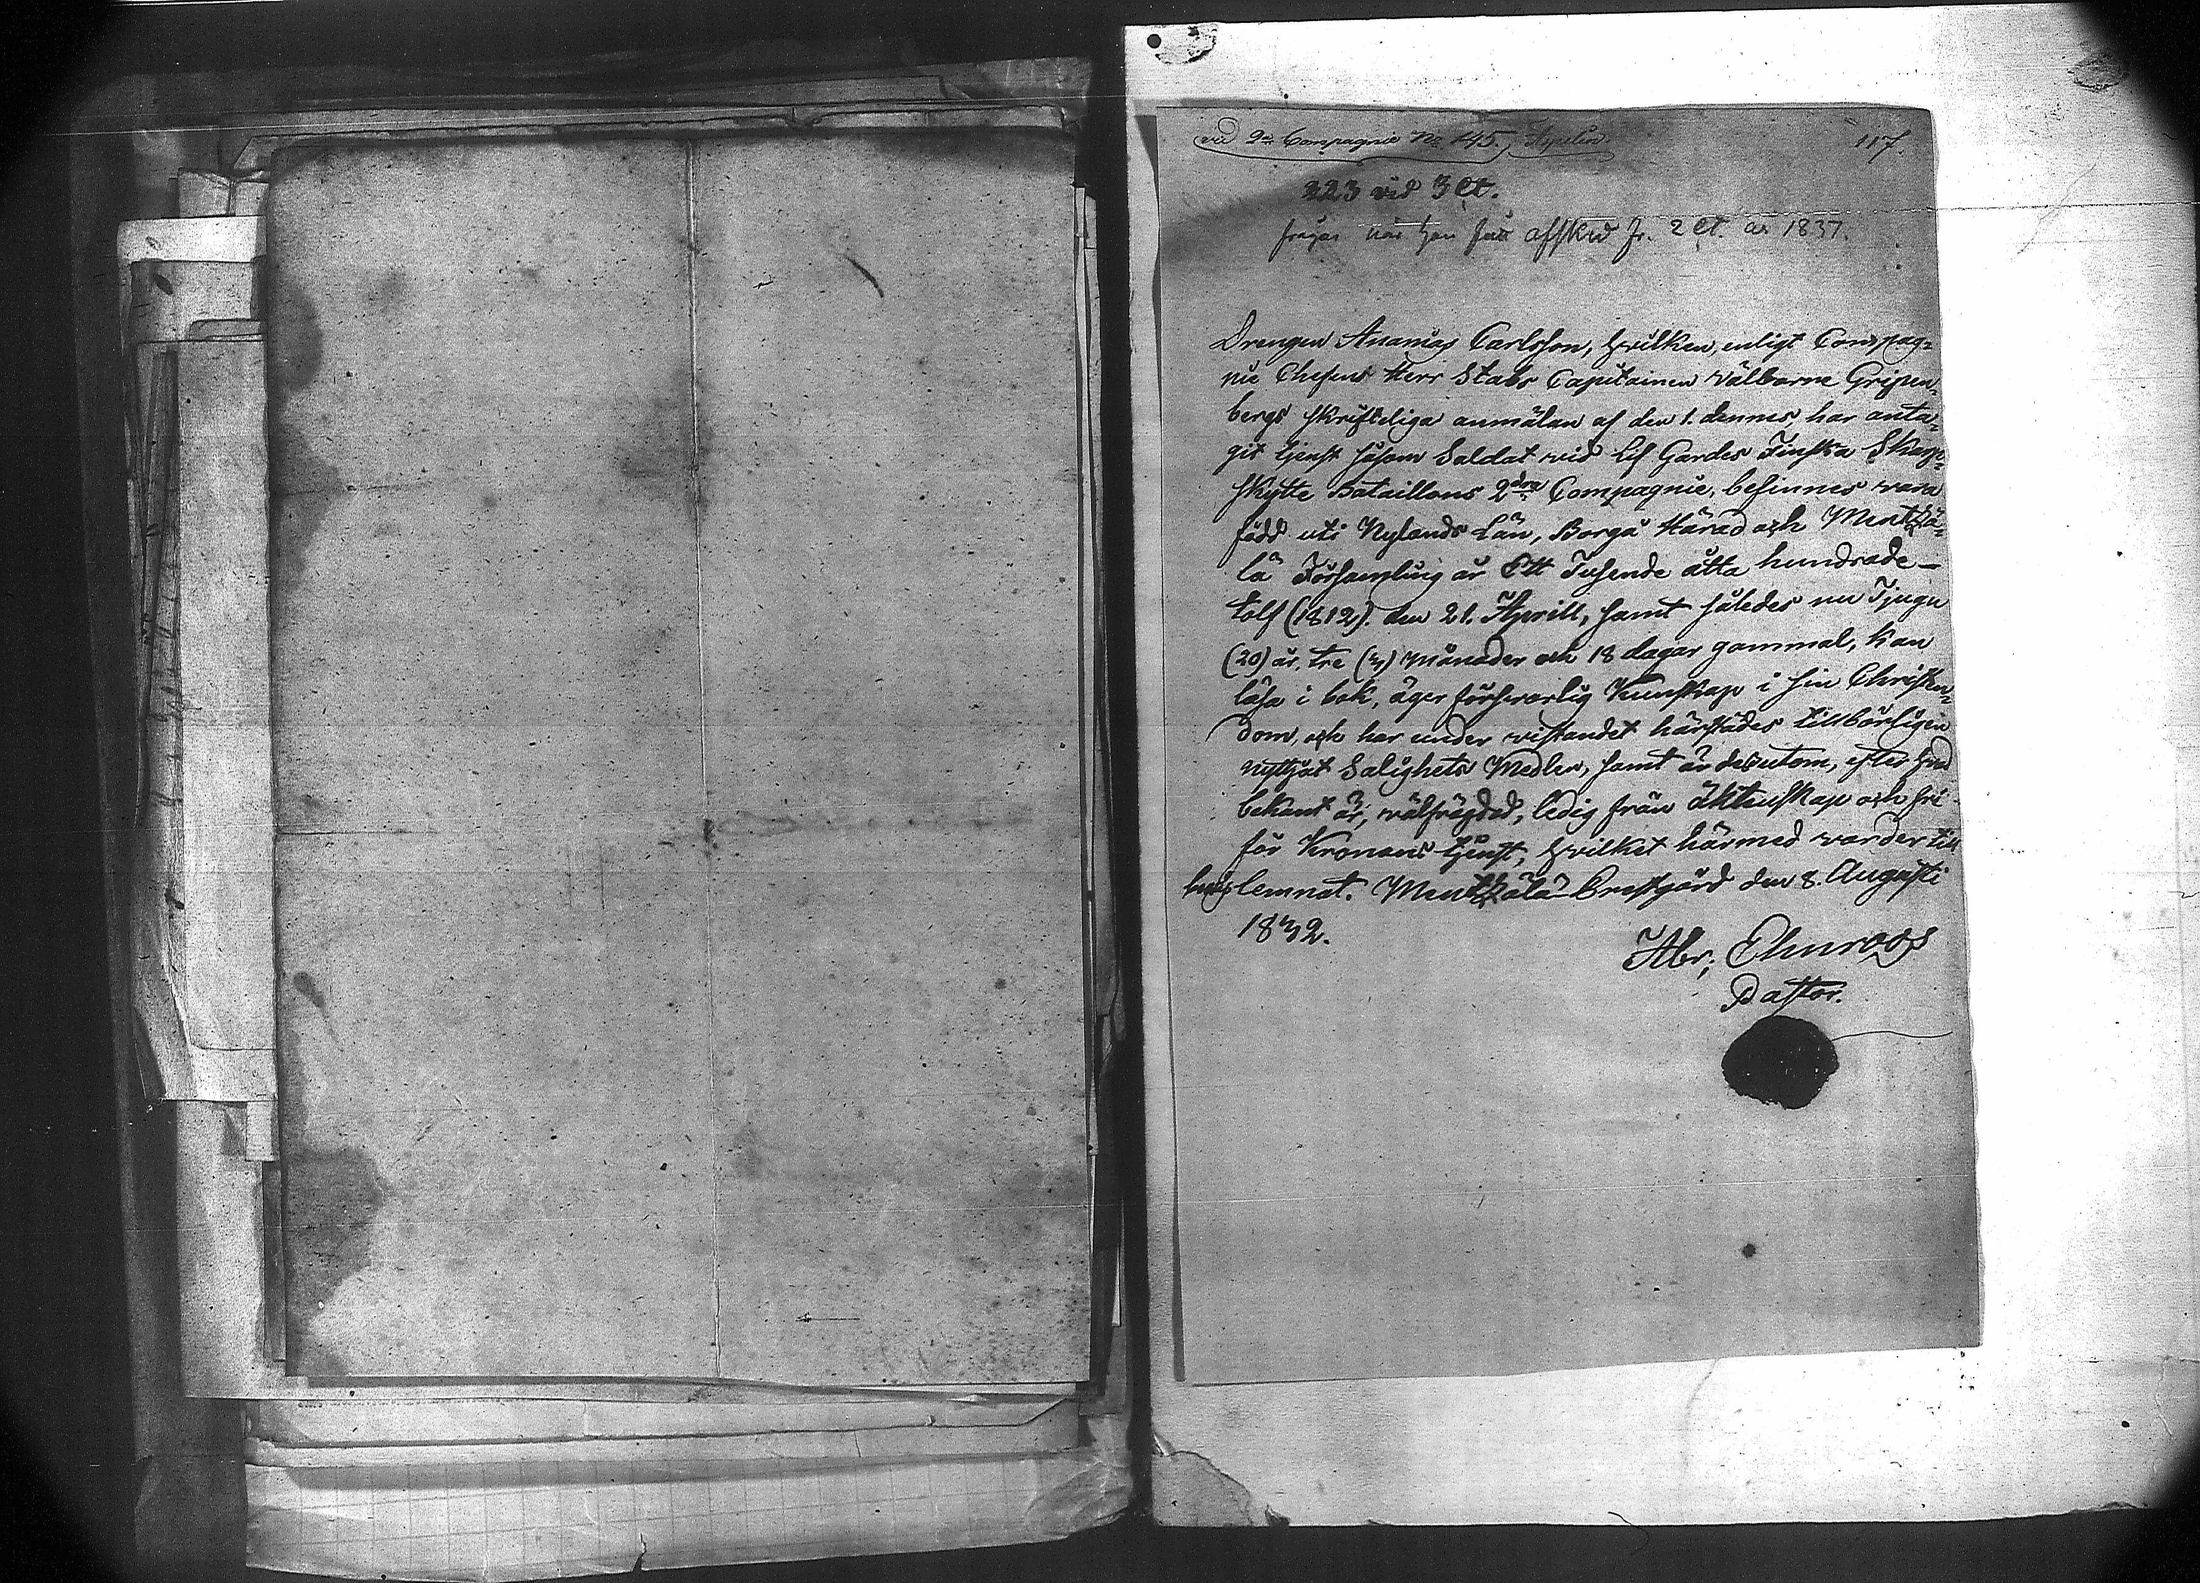 vid 2a Compagnie No 145. Aquilin.
117.
223 vid 3 Ct.
frågas när han fått afsked fr. 2 Ct. år 1837.
Drengen Ananias Carlsson, hvilken, enligt Compag=
nie Chefens Herr Stabs Capitainen Välborne Gripen=
bergs skrifteliga anmälan af den 1. dennes, har anta=
git tjenst såsom Soldat vid Lif Gardes Finska Skarp=
skytte Bataillons 2dra Compagnie, befinnes vara
född uti Nylands Län, Borgå Härad och Mentzä=
lä Församling år Ett Tusende åtta hundrade
tolf (1812). den 21. Aprill, samt således nu Tjugu
(20) år, tre (3) månader och 18 dagar gammal, kan
läsa i bok, äger försvarlig Kunskap i sin Christen=
dom, och har under vistandet härstädes tillbörligen
nyttjat Salighets Medlen, samt är dessutom, efter hvad
bekant är, välfrägdad, ledig från äktenskap och fri
för Kronans tjenst, hvilket härmed varder till
bevis lemnat. Mentzälä Prestgård den 8. Augusti
1832.
Abr; Elmroos
Pastor.